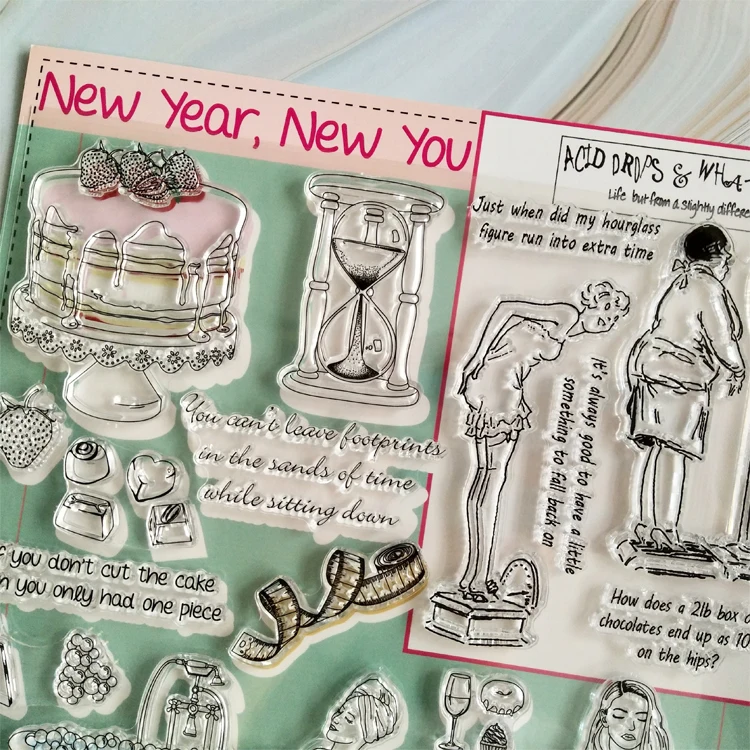 New Year, New You
ACID DROPS & WHA
Life but from a slightly differe
Just when did my hourglass
figure run into extra time
It's always good to have a little
something to fall back on
You can't leave footprints
in the sands of time
while sitting down
f you don't cut the cake
n you only had one piece
How does a 2lb box o
chocolates end up as 10
on the hips?